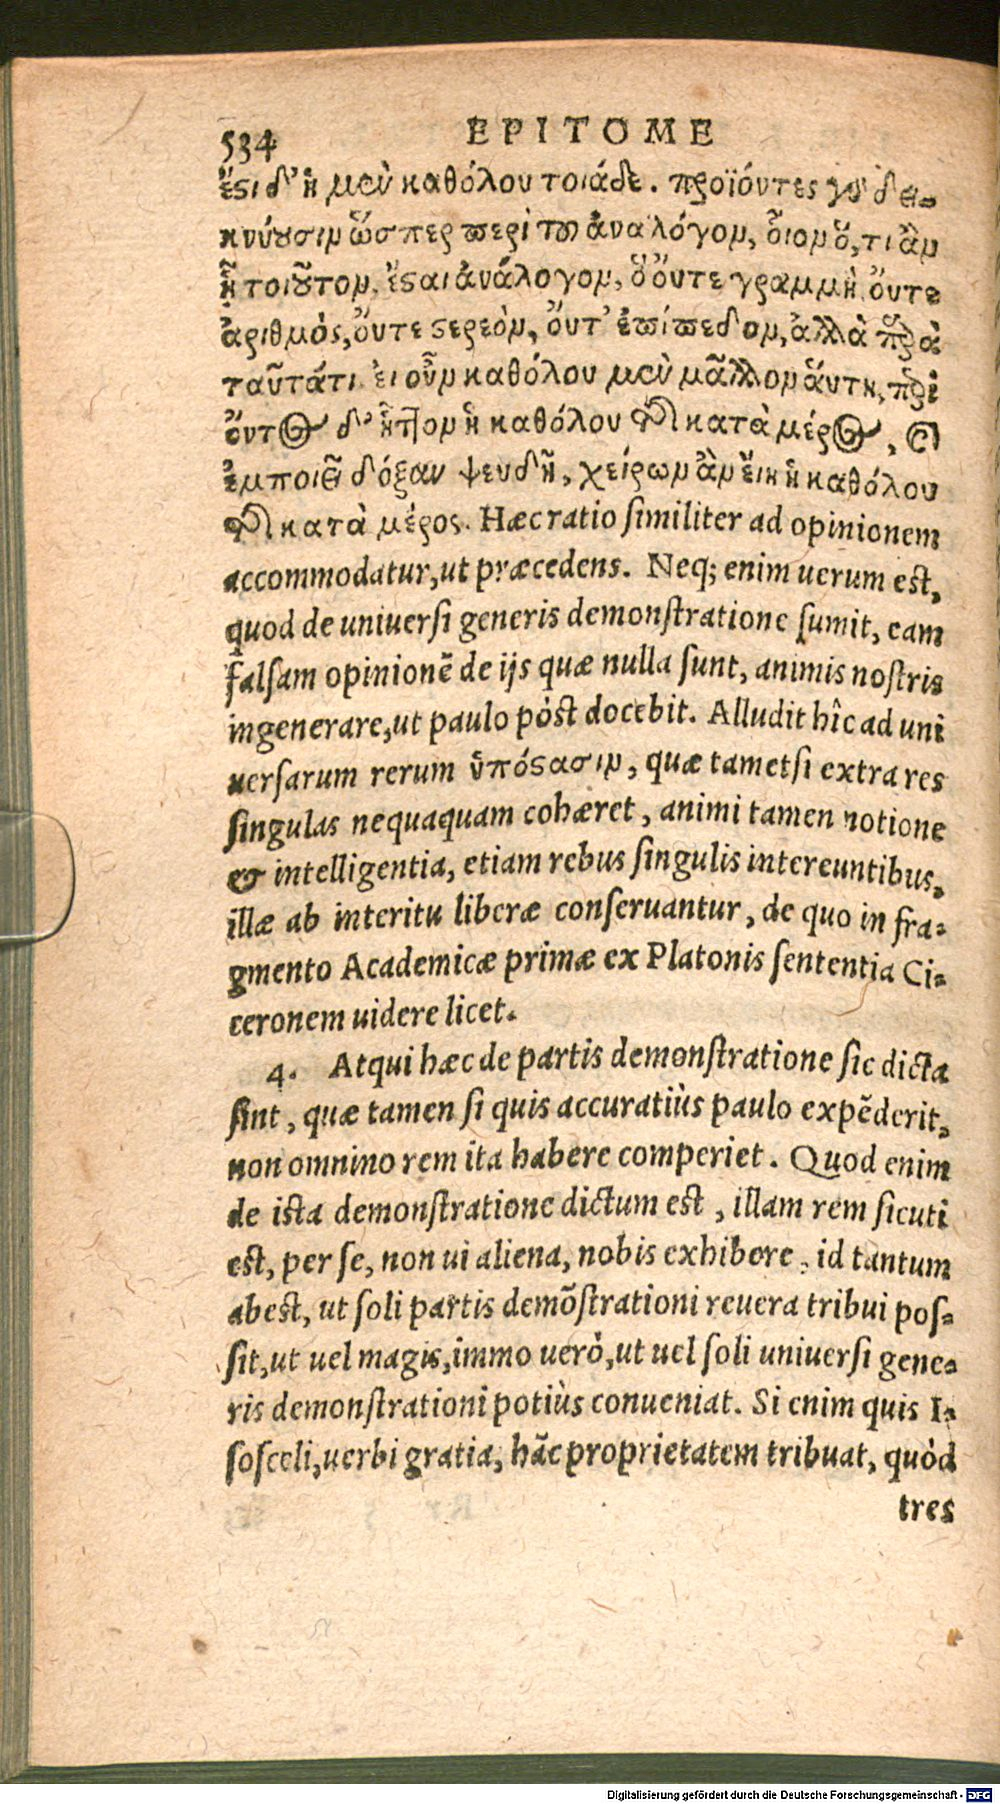 534 EPITOME
ἔστι δ' ἡ μὲν καθόλου τοιάδε. προϊόντες γὸ δει-
κνύουσιν ὥσπερ περὶ τοῦ ἀνα λόγον, οἷον ὅ,τι ἂν
ᾖ τοιοῦτον, ἔσται ἀνάλογον, ὃ οὔτε γραμμὴ, οὔτε
ἀριθμὸς, οὔτε στερεὸν, οὔτ' ἐπίπεδον, ἀλλὰ παρὰ
ταῦτά τι. εἰ οὖν καθόλου μὲν μᾶλλον αὕτη, περὶ
ὄντος δ' ἧττον ἡ καθόλου τῆς κατὰ μέρος, καὶ
ἐμποιεῖ δόξαν ψευδῆ, χείρων ἂν εἴη ἡ καθόλου
τῆς κατὰ μέρος. Hæc ratio similiter ad opinionem
accommodatur, ut præcedens. Neq; enim uerum est,
quod de uniuersi generis demonstratione sumit, eam
falsam opinionē de ijs quæ nulla sunt, animis nostris
ingenerare, ut paulo pòst docebit. Alludit hîc ad uni
uersarum rerum ὑπόστασιν, quæ tametsi extra res
singulas nequaquam cohæret, animi tamen notione
& intelligentia, etiam rebus singulis intereuntibus,
illæ ab interitu liberæ conseruantur, de quo in fra-
gmento Academicæ primæ ex Platonis sententia Ci-
ceronem uidere licet.
4. Atqui hæc de partis demonstratione sic dicta
sint, quæ tamen si quis accuratiùs paulo expēderit,
non omnino rem ita habere comperiet. Quod enim
de ista demonstratione dictum est, illam rem sicuti
est, per se, non ui aliena, nobis exhibere, id tantum
abest, ut soli partis demōstrationi reuera tribui pos-
sit, ut uel magis, immo uerò, ut uel soli uniuersi gene-
ris demonstrationi potiùs conueniat. Si enim quis I-
sosceli, uerbi gratia, hāc proprietatem tribuat, quòd
tres
Digitalisierung gefördert durch die Deutsche Forschungsgemeinschaft - DFG